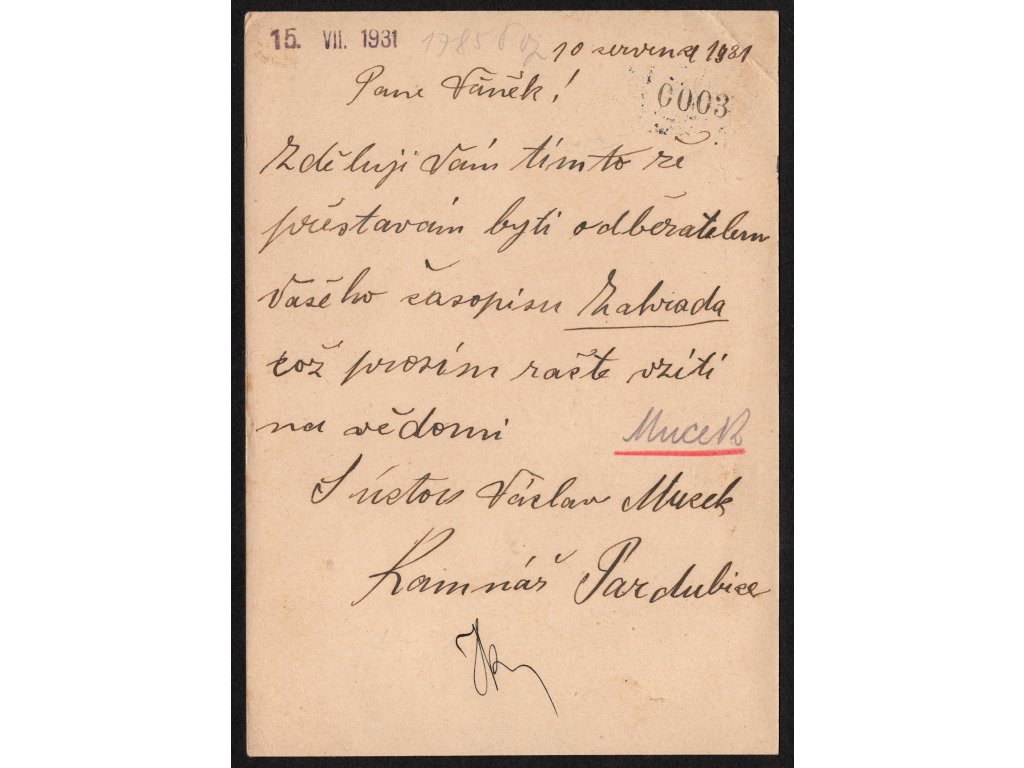 15. VII. 1931
10 června 1931
0003
Pane Váněk!
Zděluji Vám tímto že
přestavám byti odběratelem
Vašého časopisu Zahrada
což prosím račte vzíti
na vědomi
Mucek
S úctou Václav Mucek
Kamnář Pardubice